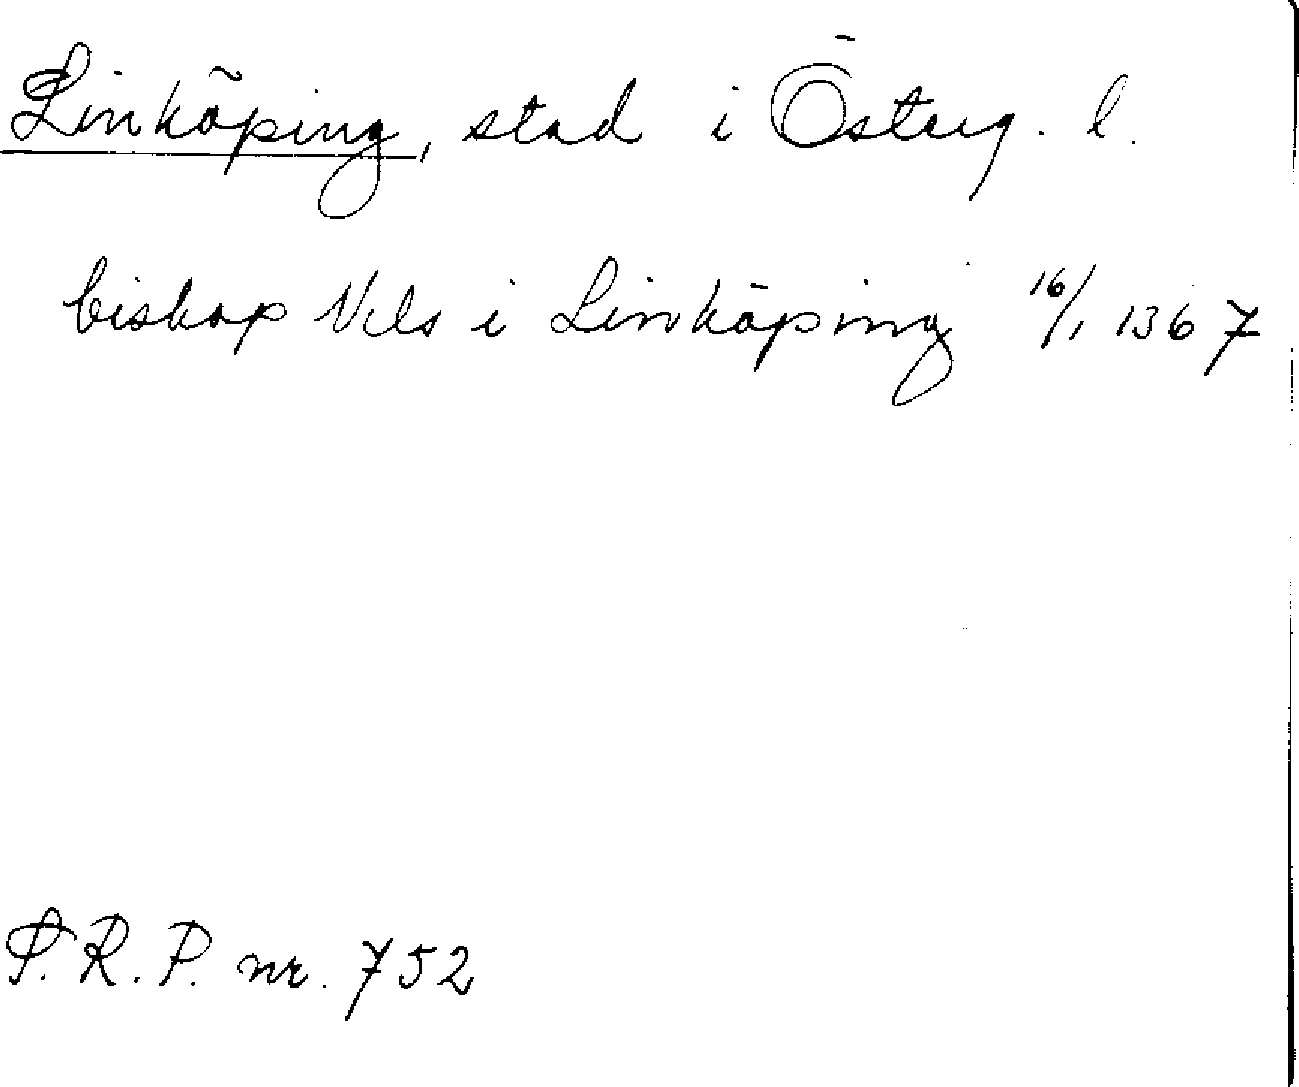 Linköping, stad i Österg. l.
biskop Nils i Linköping 16/1 1367
P.R.P. nr. 752